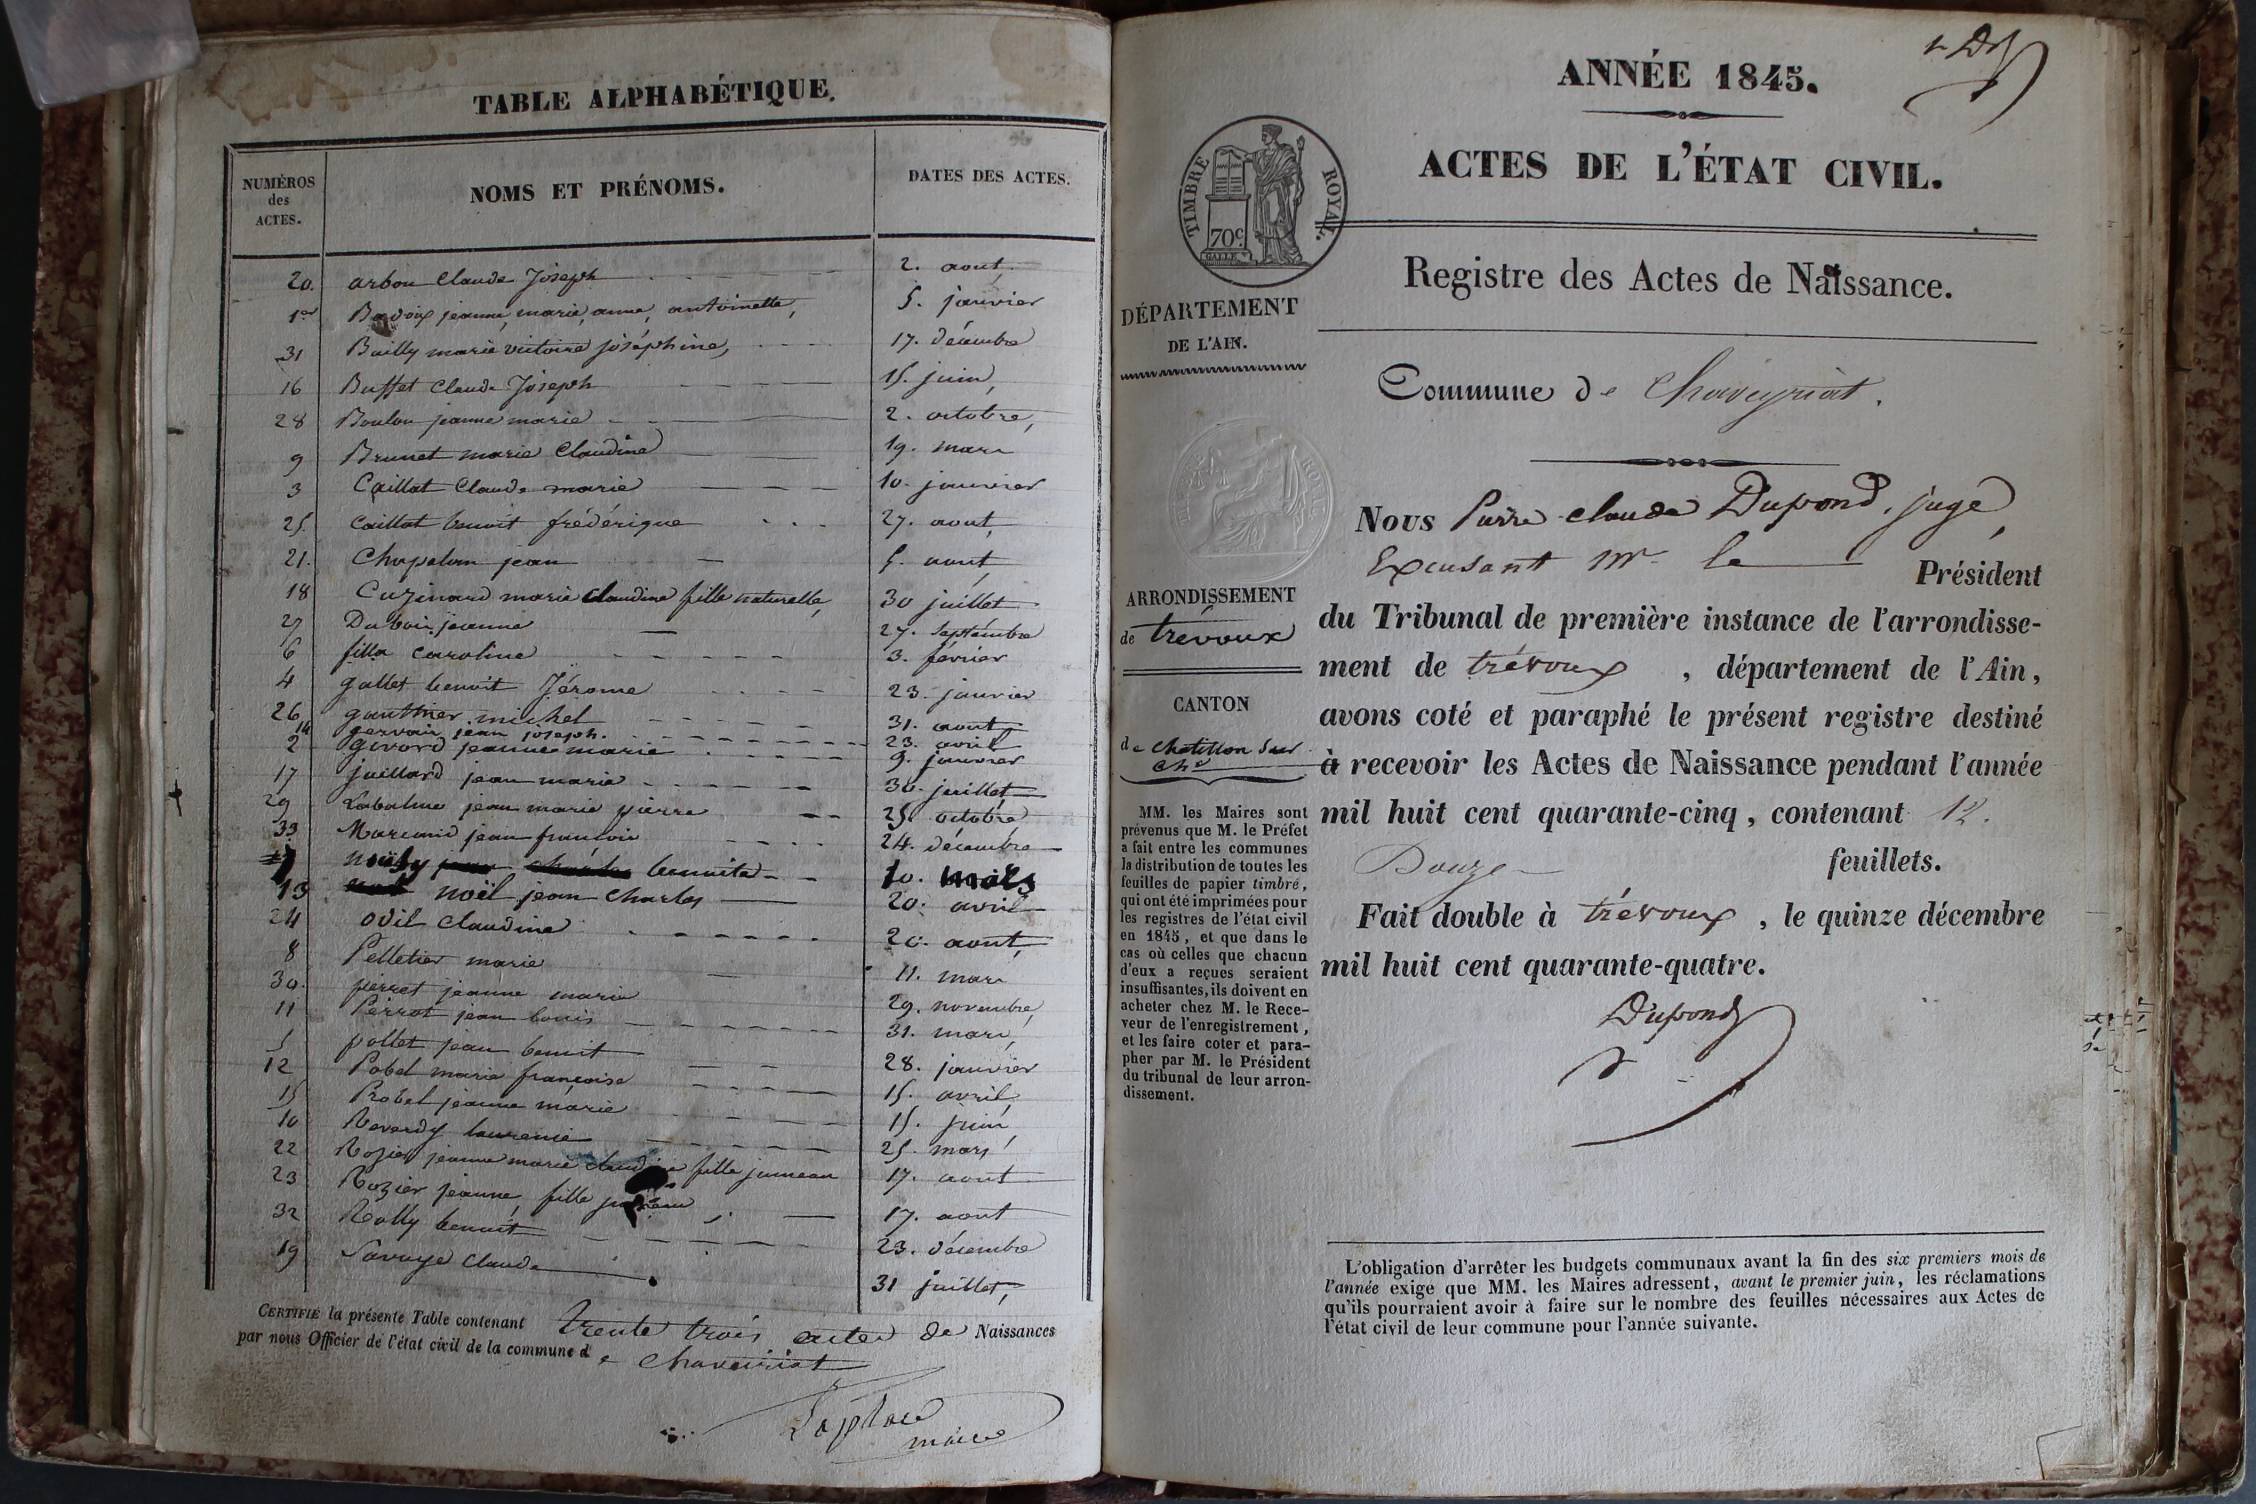 TABLE ALPHABÉTIQUE.
NUMÉROS des ACTES.
NOMS ET PRÉNOMS.
DATES DES ACTES.
20. arbon Claude Joseph 2. aout
1er jeanne, marie, anne, antoinette, 5. janvier
31 Bailly marie victoire joséphine, 17. décembre
16 Buffet Claude Joseph 15. juin,
28 Boulon jeanne marie 2. octobre,
9 Brunet marie Claudine 19. mars
3 Caillat Claude marie 10. janvier
25. Caillat benoit frédérique 27. aout,
21. Chapelan jean 5. aout,
18 Cuzinard marie Claudine fille naturelle, 30 juillet
27 Dubois jeanne 27. septembre
6 filla caroline 3. février
4 gallet benoit Jérome 23. janvier
26 gauthier michel 31. aout,
14 gervais jean joseph. 23. avril
2 givord jeanne marie 9. janvier
17 juillard jean marie 30. juillet
29 Labalme jean marie pierre 25 octobre
33 Marcand jean francois 24. décembre
7 benoite 10. mars
13 noël jean Charles 20. avril
24 ovil Claudine 20. aout,
8 Pelletier marie 11. mars
30. pierret jeanne marie 29. novembre,
11 Perrot jean louis 31. mars,
5 pollet jean benoit 28. janvier
12 Pobel marie françoise 15. avril,
15 Probel jeanne marie 15. juin,
10 Reverdy laurence 25. mars,
22 Rozier jeanne marie claudine fille jumeau 17. aout
23 Rozier jeanne, fille jumeau 17. aout
32 Rolly benoit 23. décembre
19 Savaye Claude 31 juillet,
CERTIFIÉ la présente Table contenant trente trois actes de Naissances
par nous Officier de l'état civil de la commune de Chaveiriat
Laplace
maire
ANNÉE 1845.
ACTES DE L'ÉTAT CIVIL.
TIMBRE ROYAL.
70c.
Registre des Actes de Naissance.
DÉPARTEMENT
DE L'AIN.
Commune de Chaveyriat.
Nous Pierre Claude Dupond, juge,
Excusant Mr. le Président
ARRONDISSEMENT
de trévoux
du Tribunal de première instance de l'arrondisse-
ment de trévoux , département de l'Ain,
CANTON
de Chatillon sur
Chne
avons coté et paraphé le présent registre destiné
à recevoir les Actes de Naissance pendant l'année
mil huit cent quarante-cinq, contenant 12.
Douze feuillets.
Fait double à trévoux , le quinze décembre
mil huit cent quarante-quatre.
Dupond
MM. les Maires sont
prévenus que M. le Préfet
a fait entre les communes
la distribution de toutes les
feuilles de papier timbré,
qui ont été imprimées pour
les registres de l'état civil
en 1845, et que dans le
cas où celles que chacun
d'eux a reçues seraient
insuffisantes, ils doivent en
acheter chez M. le Rece-
veur de l'enregistrement,
et les faire coter et para-
pher par M. le Président
du tribunal de leur arron-
dissement.
L'obligation d'arrêter les budgets communaux avant la fin des six premiers mois de
l'année exige que MM. les Maires adressent, avant le premier juin, les réclamations
qu'ils pourraient avoir à faire sur le nombre des feuilles nécessaires aux Actes de
l'état civil de leur commune pour l'année suivante.